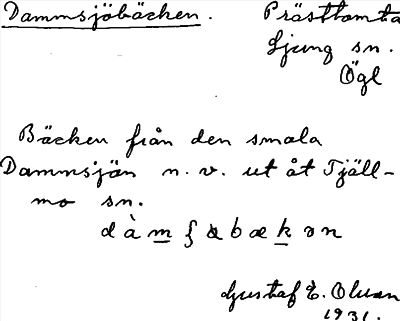 Dammsjöbäcken. Prästtomta
Ljung sn.
Ögl
Bäcken från den smala
Dammsjön n. v. ut åt Tjäll-
mo sn.
dàmʃɑbækən
Gustaf E. Olsson
1931.